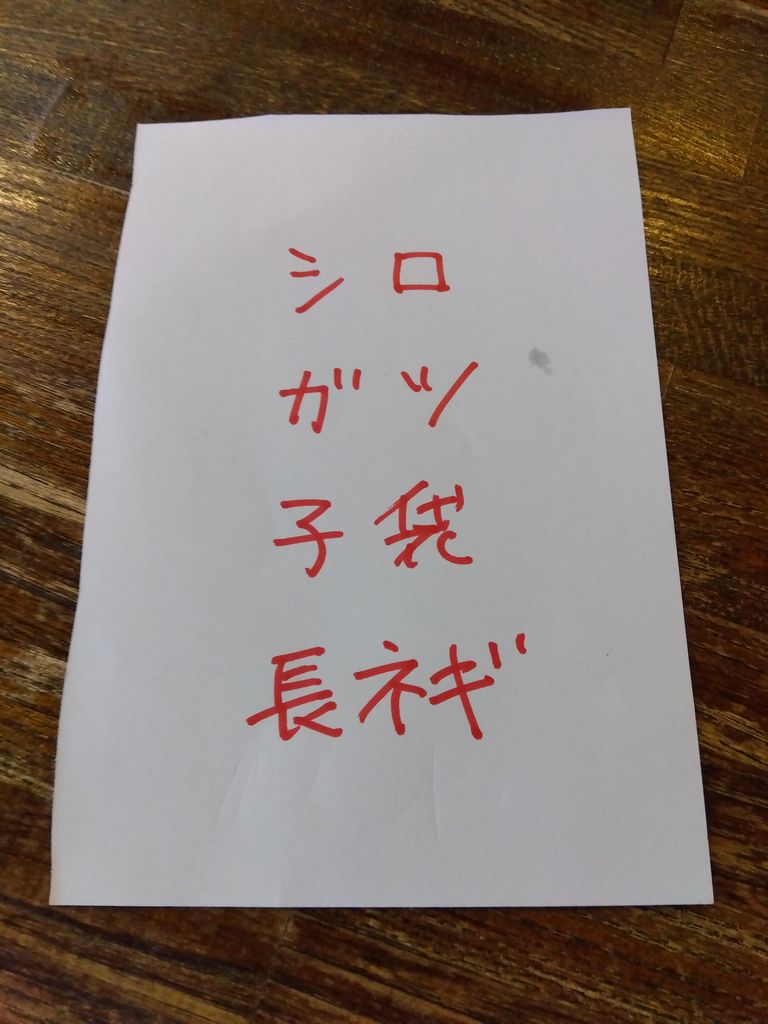 シロ
ガツ
子袋
長ネギ